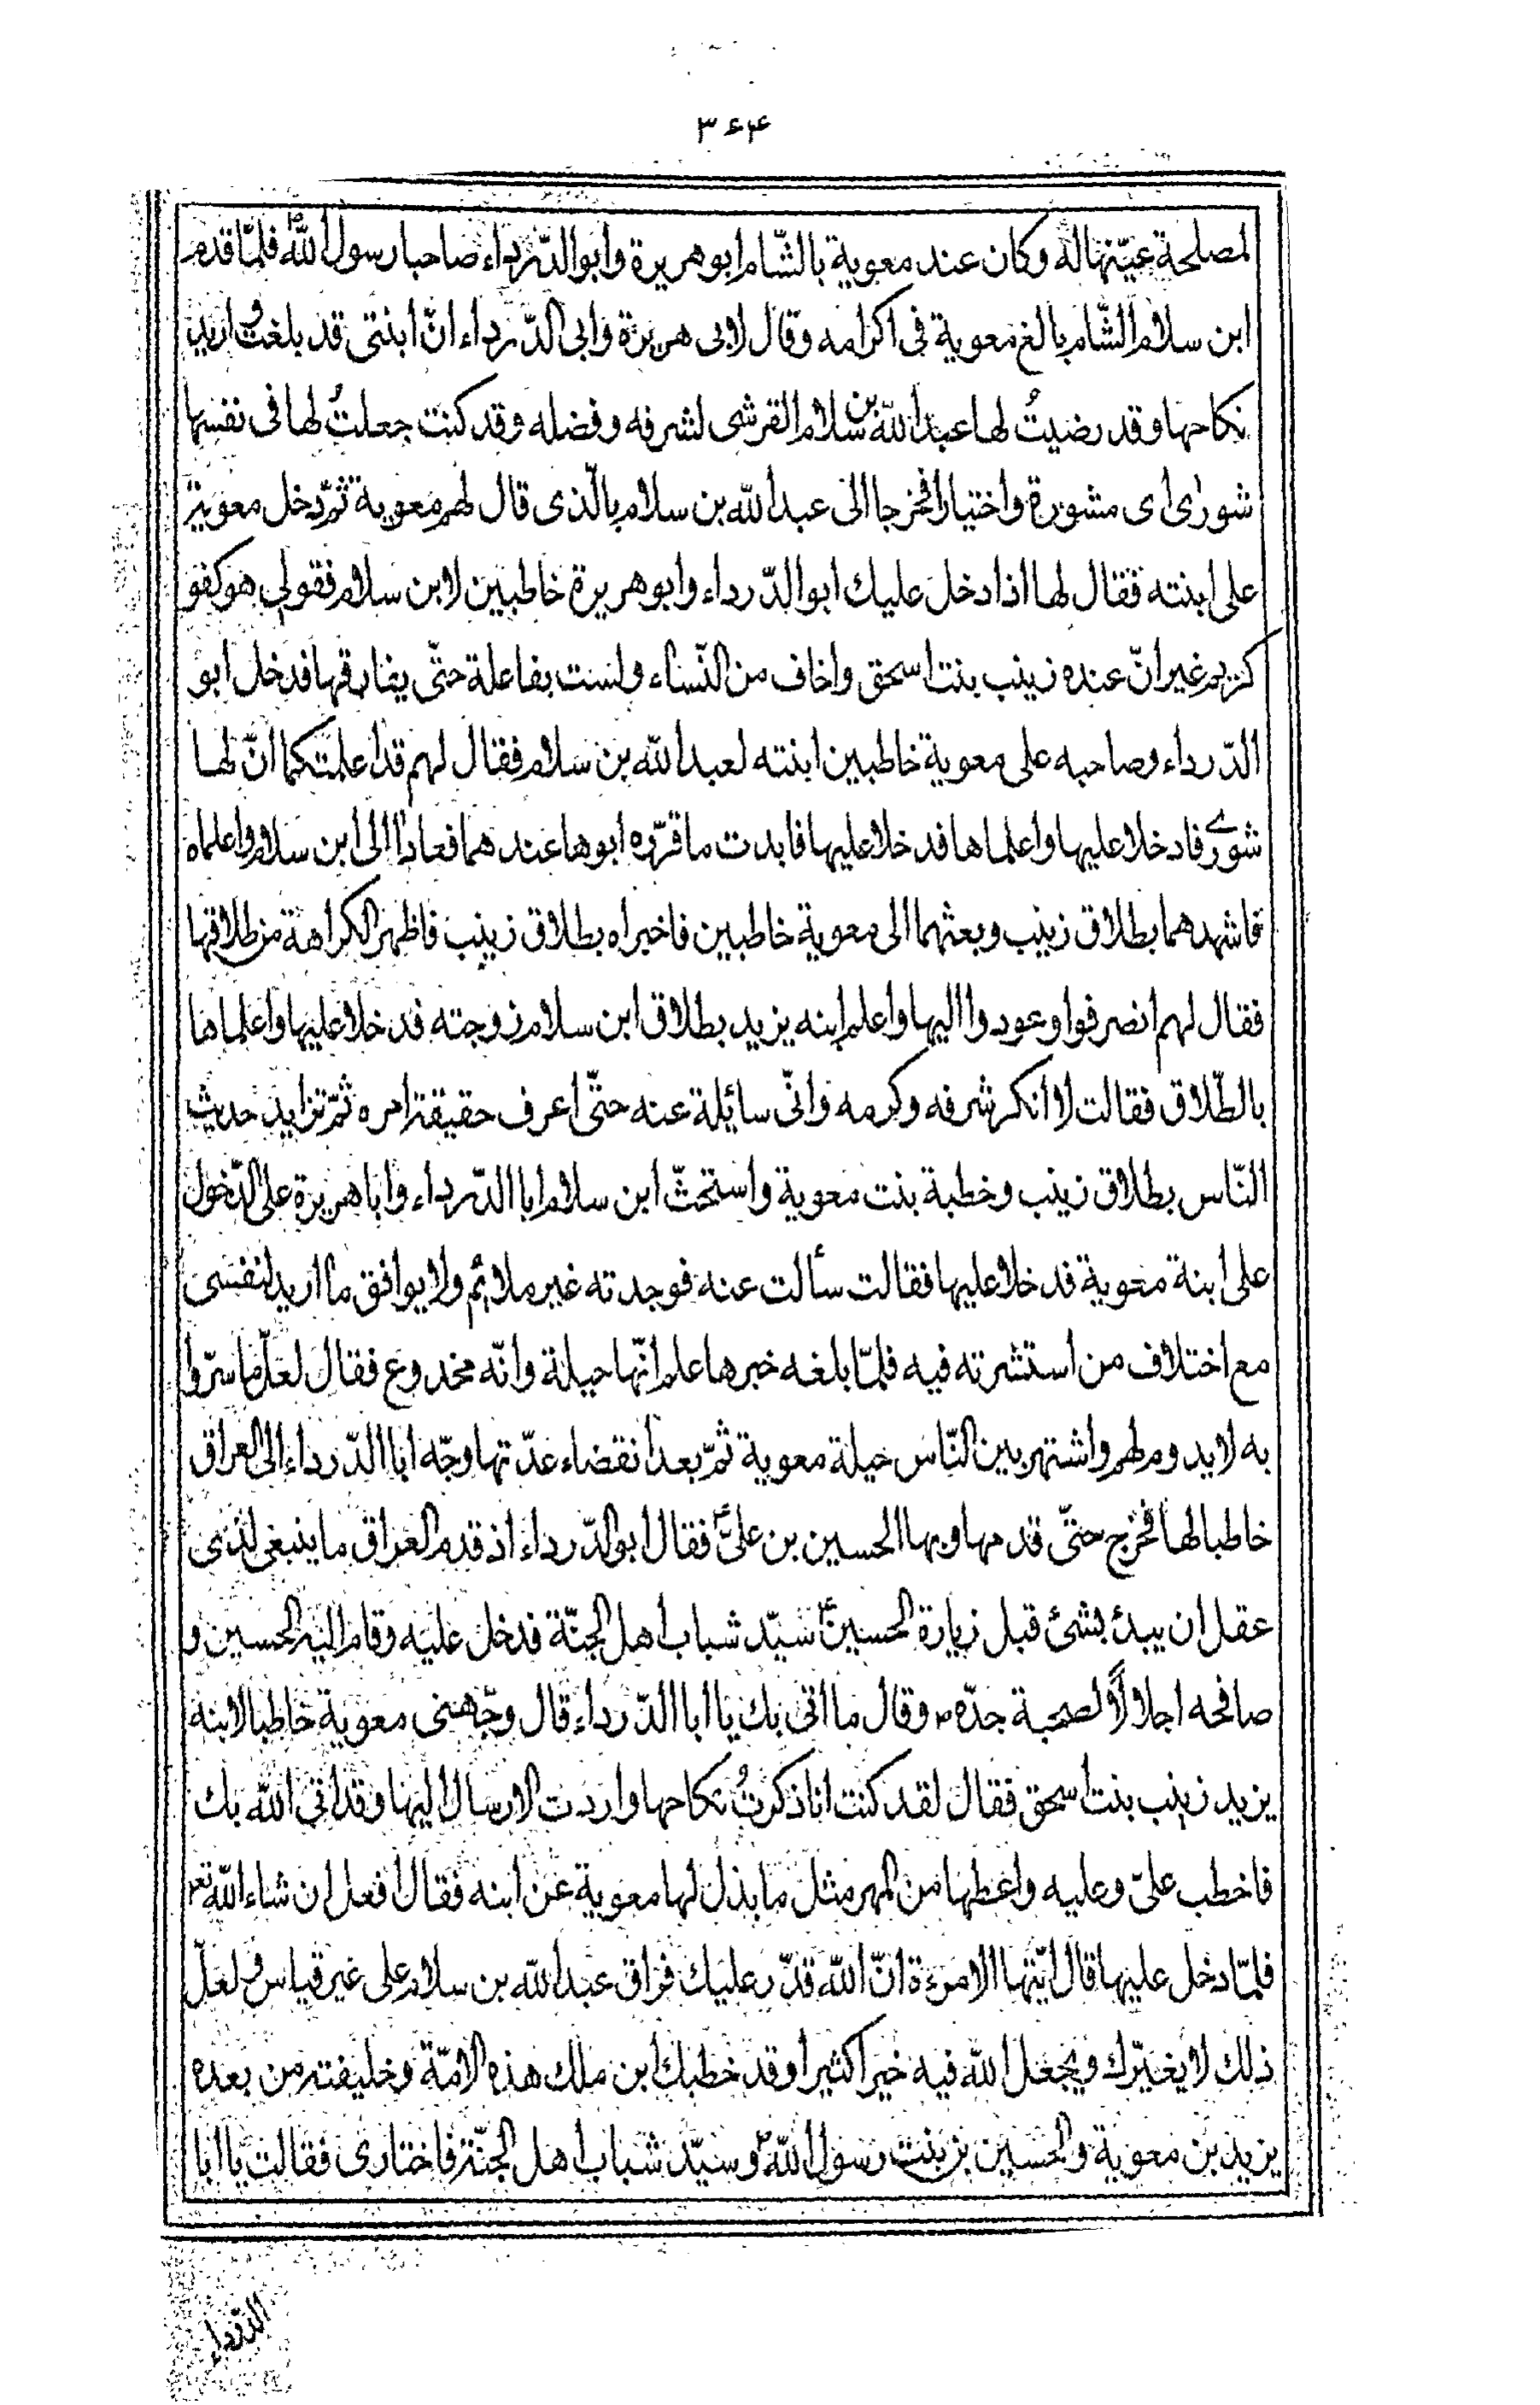 ۳۶۴
لمصلحة عيّنها له وكان عند معوية بالشّام ابو هريرة وابو الدّرداء صاحبا رسول اللّه ص فلمّا قدم
ابن سلام الشّام بالغ معوية فى اكرامه وقال لابى هريرة وابى الدّرداء انّ ابنتى قد بلغت و اريد
نكاحها وقد رضيتُ لها عبد اللّه بن سلام القرشى لشرفه وفضله وقد كنت جعلتُ لها فى نفسها
شورٰى اى مشورة واختيارا فخرجا الى عبد اللّه بن سلام بالّذى قال لهم معوية ثمّ دخل معوية
على ابنته فقال لها اذا دخل عليك ابو الدّرداء وابو هريرة خاطبين لابن سلام فقولى هو كفو
كريم غير انّ عنده زينب بنت اسحق واخاف من النّساء ولست بفاعلة حتّى يفارقها فدخل ابو
الدّرداء وصاحبه على معوية خاطبين ابنته لعبد اللّه بن سلام فقال لهم قد اعلمتكما انّ لها
شورے فادخلا عليها واعلماها فدخلا عليها فابدت ما قرّره ابوها عندهما فعادا الى ابن سلام واعلماه
فاشهدهما بطلاق زينب وبعثهما الى معوية خاطبين فاخبراه بطلاق زينب فاظهر الكراهة من طلاقها
فقال لهم انصرفوا وعودوا اليها واعلم ابنه يزيد بطلاق ابن سلام زوجته فدخلا عليها واعلماها
بالطّلاق فقالت لا انكر شرفه وكرمه وانّى سائلة عنه حتّى اعرف حقيقة امره ثمّ تزايد حديث
النّاس بطلاق زينب وخطبة بنت معوية واستحثّ ابن سلام ابا الدّرداء وابا هريرة على الدّخول
على ابنة معوية فدخلا عليها فقالت سألت عنه فوجدته غير ملائم ولا يوافق ما اريد لنفسى
مع اختلاف من استشرته فيه فلمّا بلغه خبرها علم انّها حيلة وانّه مخدوع فقال لعلّ ما سرّوا
به لا يدوم لهم واشتهر بين النّاس حيلة معوية ثمّ بعد انقضاء عدّتها وجّه ابا الدّرداء الى العراق
خاطبا لها فخرج حتّى قدمها وبها الحسين بن علىّ ع فقال ابو الدّرداء اذ قدم العراق ما ينبغى لذى
عقل ان يبدئ بشئ قبل زيارة الحسين ع سيّد شباب اهل الجنّة فدخل عليه وقام اليه الحسين و
صافحه اجلالًا لصحبة جدّه ص وقال ما اتى بك يا ابا الدّرداء قال وجّهنى معوية خاطبا لابنه
يزيد زينب بنت اسحق فقال لقد كنت انا ذكرتُ نكاحها واردت الارسال اليها وقد اتى اللّه بك
فاخطب علىّ وعليه واعطها من المهر مثل ما بذل لها معوية عن ابنه فقال افعل ان شاء اللّه تعہ
فلمّا دخل عليها قال ايّتها الامرءة انّ اللّه قدّر عليك فراق عبد اللّه بن سلام على غير قياس و لعلّ
ذلك لا يغيّرك ويجعل اللّه فيه خيرا كثيرا وقد خطبك ابن ملك هذه الامّة وخليفته من بعده
يزيد بن معوية والحسين بن بنت رسول اللّه ص وسيّد شباب اهل الجنّة فاختارى فقالت يا ابا
الدّرداء